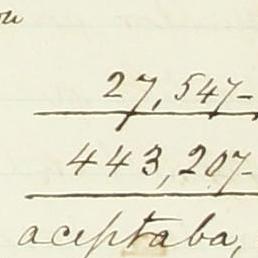 27,547-
443,207-
aceptaba,